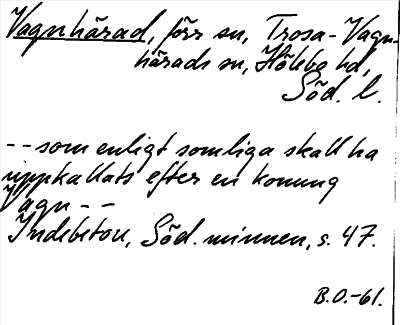 Vagnhärad, förr sn, Trosa-Vagn-
härads sn, Hölebo hd,
Söd. l.
--som enligt somliga skall ha
uppkallats efter en konung
Vagn--
Indebetou, Söd. minnen, s. 47.
B.O.-61.